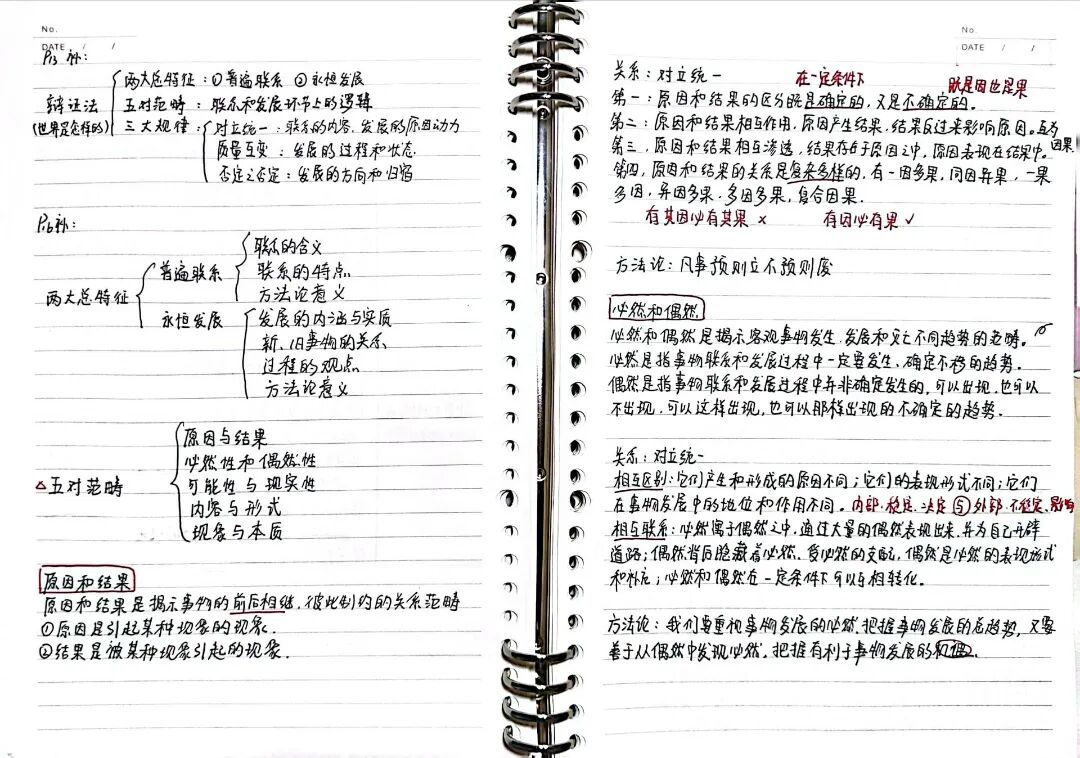 No.
DATE / /
P15 补:
辩证法
(世界是怎样的)
两大总特征:①普遍联系 ②永恒发展
五对范畴:联系和发展环节上的逻辑
三大规律:
对立统一:联系的内容、发展的原因动力
质量互变:发展的过程和状态
否定之否定:发展的方向和归宿
P16补:
两大总特征
普遍联系
联系的含义
联系的特点
方法论意义
永恒发展
发展的内涵与实质
新、旧事物的关系
过程的观点
方法论意义
△五对范畴
原因与结果
必然性和偶然性
可能性与现实性
内容与形式
现象与本质
原因和结果
原因和结果是揭示事物的前后相继、彼此制约的关系范畴
①原因是引起某种现象的现象.
②结果是被某种现象引起的现象.
No.
DATE / /
关系:对立统一
在一定条件下
既是因也是果
第一:原因和结果的区分既是确定的,又是不确定的.
第二:原因和结果相互作用,原因产生结果,结果反过来影响原因。互为因果
第三,原因和结果相互渗透,结果存在于原因之中,原因表现在结果中。
第四,原因和结果的关系是复杂多样的,有一因多果,同因异果,一果
多因,异因多果,多因多果,复合因果.
有其因必有其果 × 有因必有果 ✓
方法论:凡事预则立不预则废
必然和偶然
必然和偶然是揭示客观事物发生、发展和灭亡不同趋势的范畴。
必然是指事物联系和发展过程中一定要发生、确定不移的趋势.
偶然是指事物联系和发展过程中并非确定发生的,可以出现,也可以
不出现,可以这样出现,也可以那样出现的不确定的趋势.
关系:对立统一
相互区别:它们产生和形成的原因不同;它们的表现形式不同;它们
在事物发展中的地位和作用不同。内部·稳定·决定 与 外部·不稳定·影响
相互联系:必然寓于偶然之中,通过大量的偶然表现出来,并为自己开辟
道路;偶然背后隐藏着必然,受必然的支配,偶然是必然的表现形式
和补充;必然和偶然在一定条件下可以互相转化。
方法论:我们要重视事物发展的必然,把握事物发展的总趋势,又要
善于从偶然中发现必然,把握有利于事物发展的机遇.